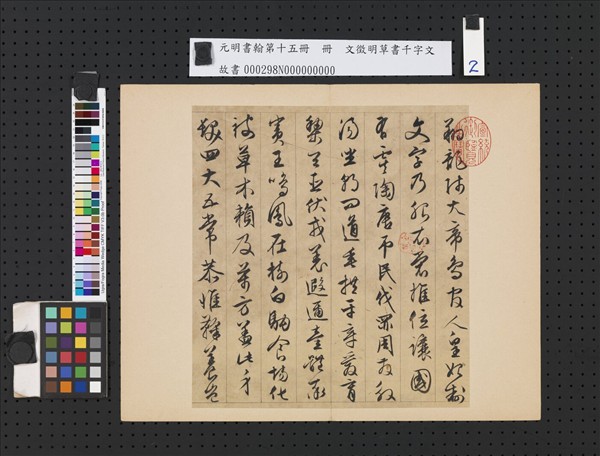 元明書翰第十五冊 冊 文徵明草書千字文
故書 000298N000000000
2
翔龍師火帝鳥官人皇始制
文字乃服衣裳推位讓國
有虞陶唐弔民伐罪周發殷
湯坐朝問道垂拱平章愛育
黎首臣伏戎羌遐邇壹體率
賓王鳴鳳在樹白駒食場化
被草木賴及萬方蓋此身
髮四大五常恭惟鞠養豈